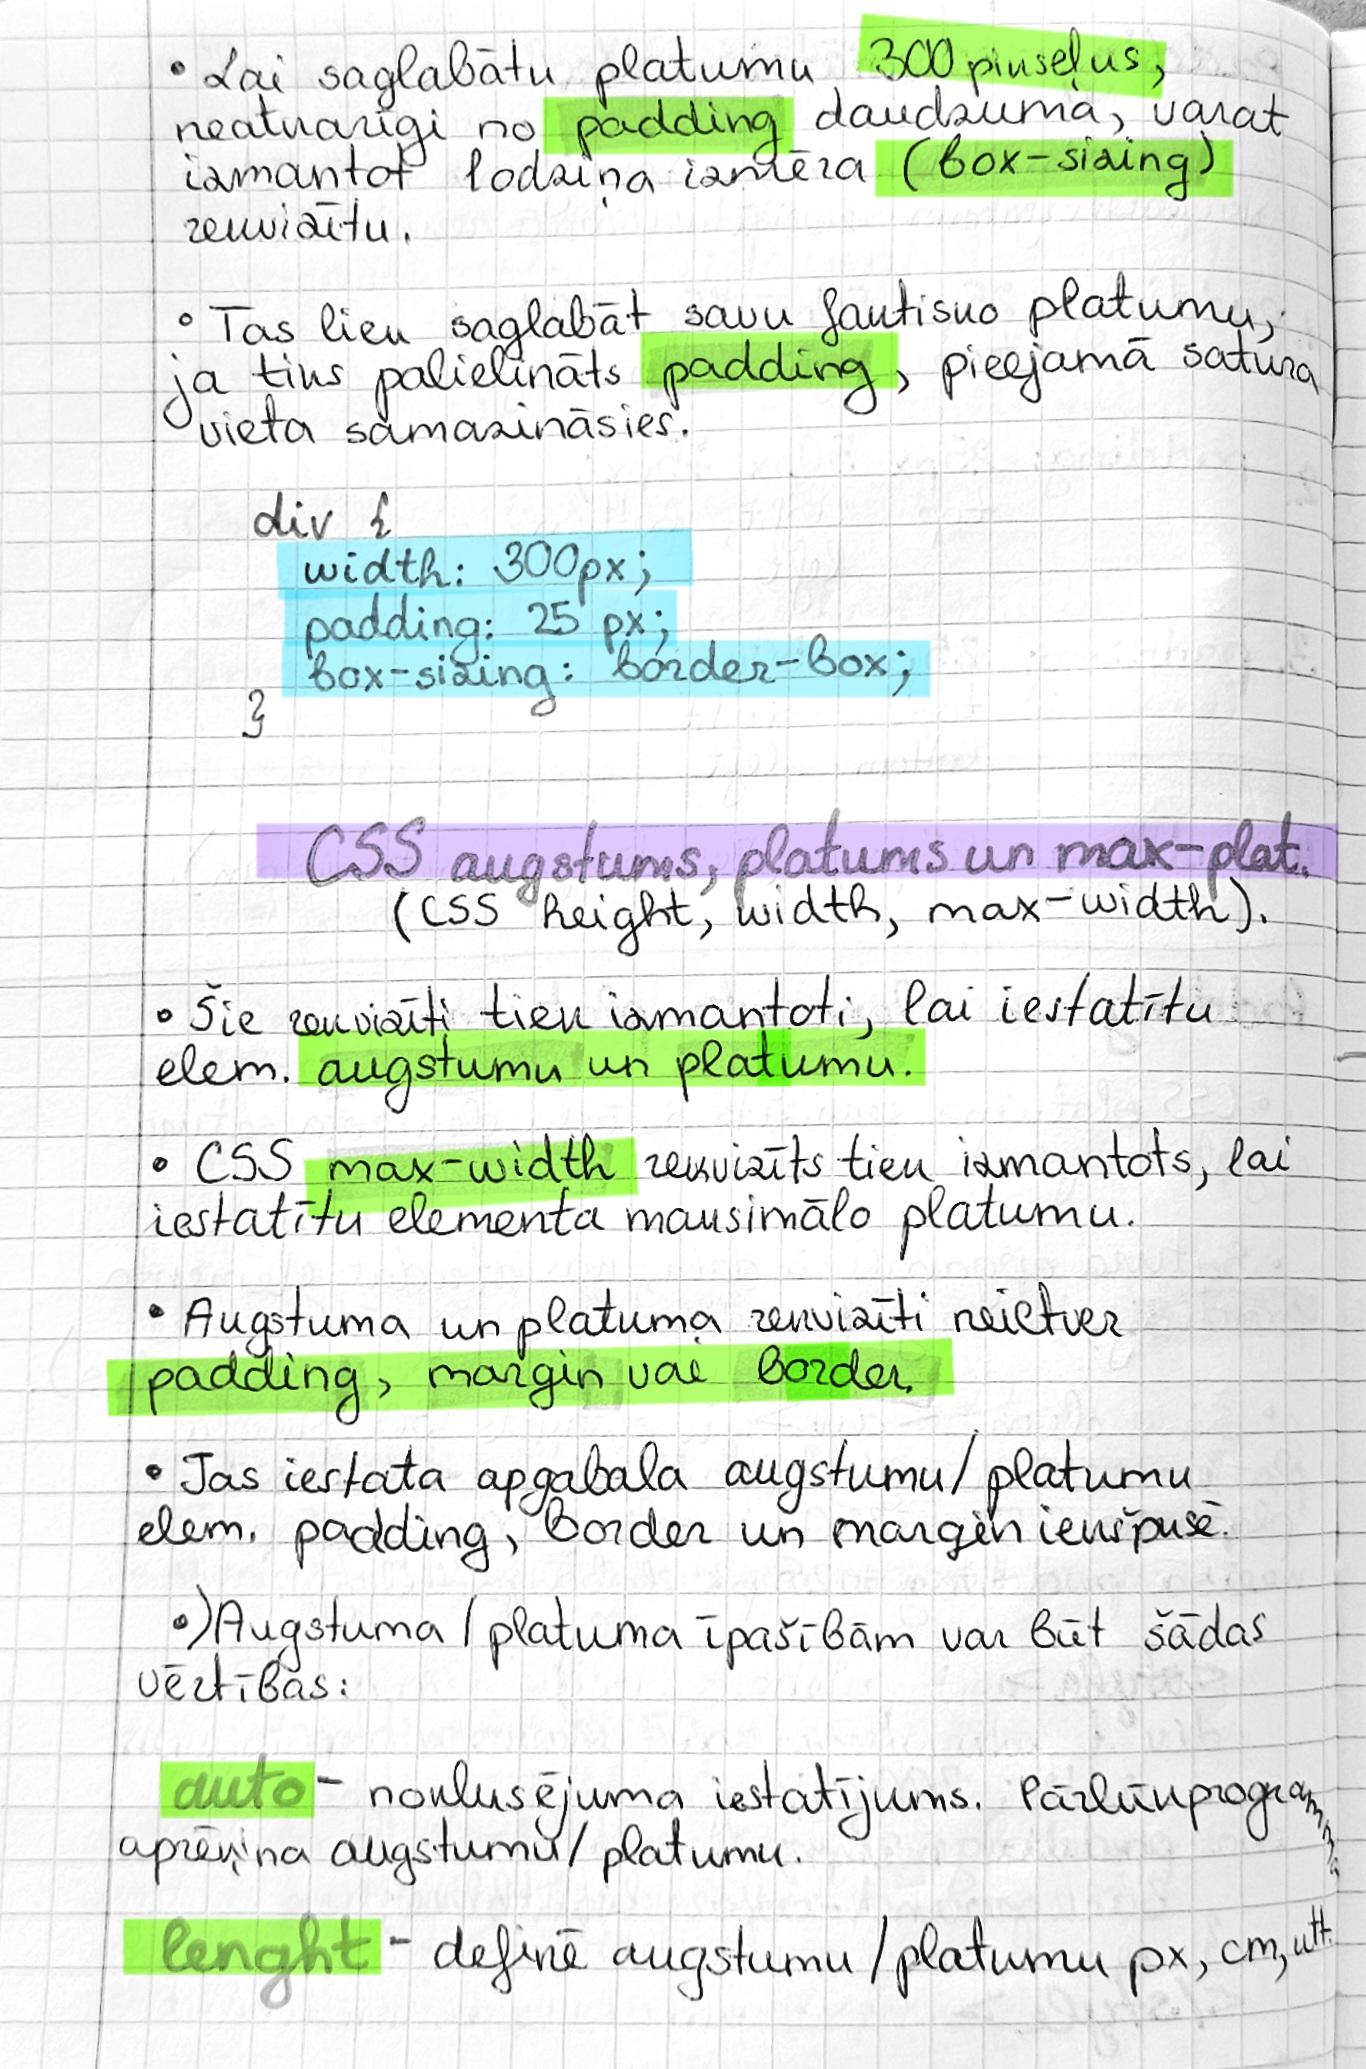 • Lai saglabātu platumu 300 pikseļus,
neatkarīgi no padding daudzuma, varat
izmantot lodziņa izmēra (box-sizing)
rekvizītu.
• Tas liek saglabāt savu faktisko platumu,
ja tiks palielināts padding, pieejamā satura
vieta samazināsies.
div {
width: 300px;
padding: 25 px;
box-sizing: border-box;
}
CSS augstums, platums un max-plat.
(CSS height, width, max-width).
• Šie rekvizīti tiek izmantoti, lai iestatītu
elem. augstumu un platumu.
• CSS max-width rekvizīts tiek izmantots, lai
iestatītu elementa maksimālo platumu.
• Augstuma un platuma rekvizīti neietver
padding, margin vai border.
• Tas iestata apgabala augstumu/platumu
elem. padding, border un margin iekšpusē.
•) Augstuma / platuma īpašībām var būt šādas
vērtības:
auto - noklusējuma iestatījums. Pārlūkprogramma
aprēķina augstumu/platumu.
lenght - definē augstumu/platumu px, cm, utt.